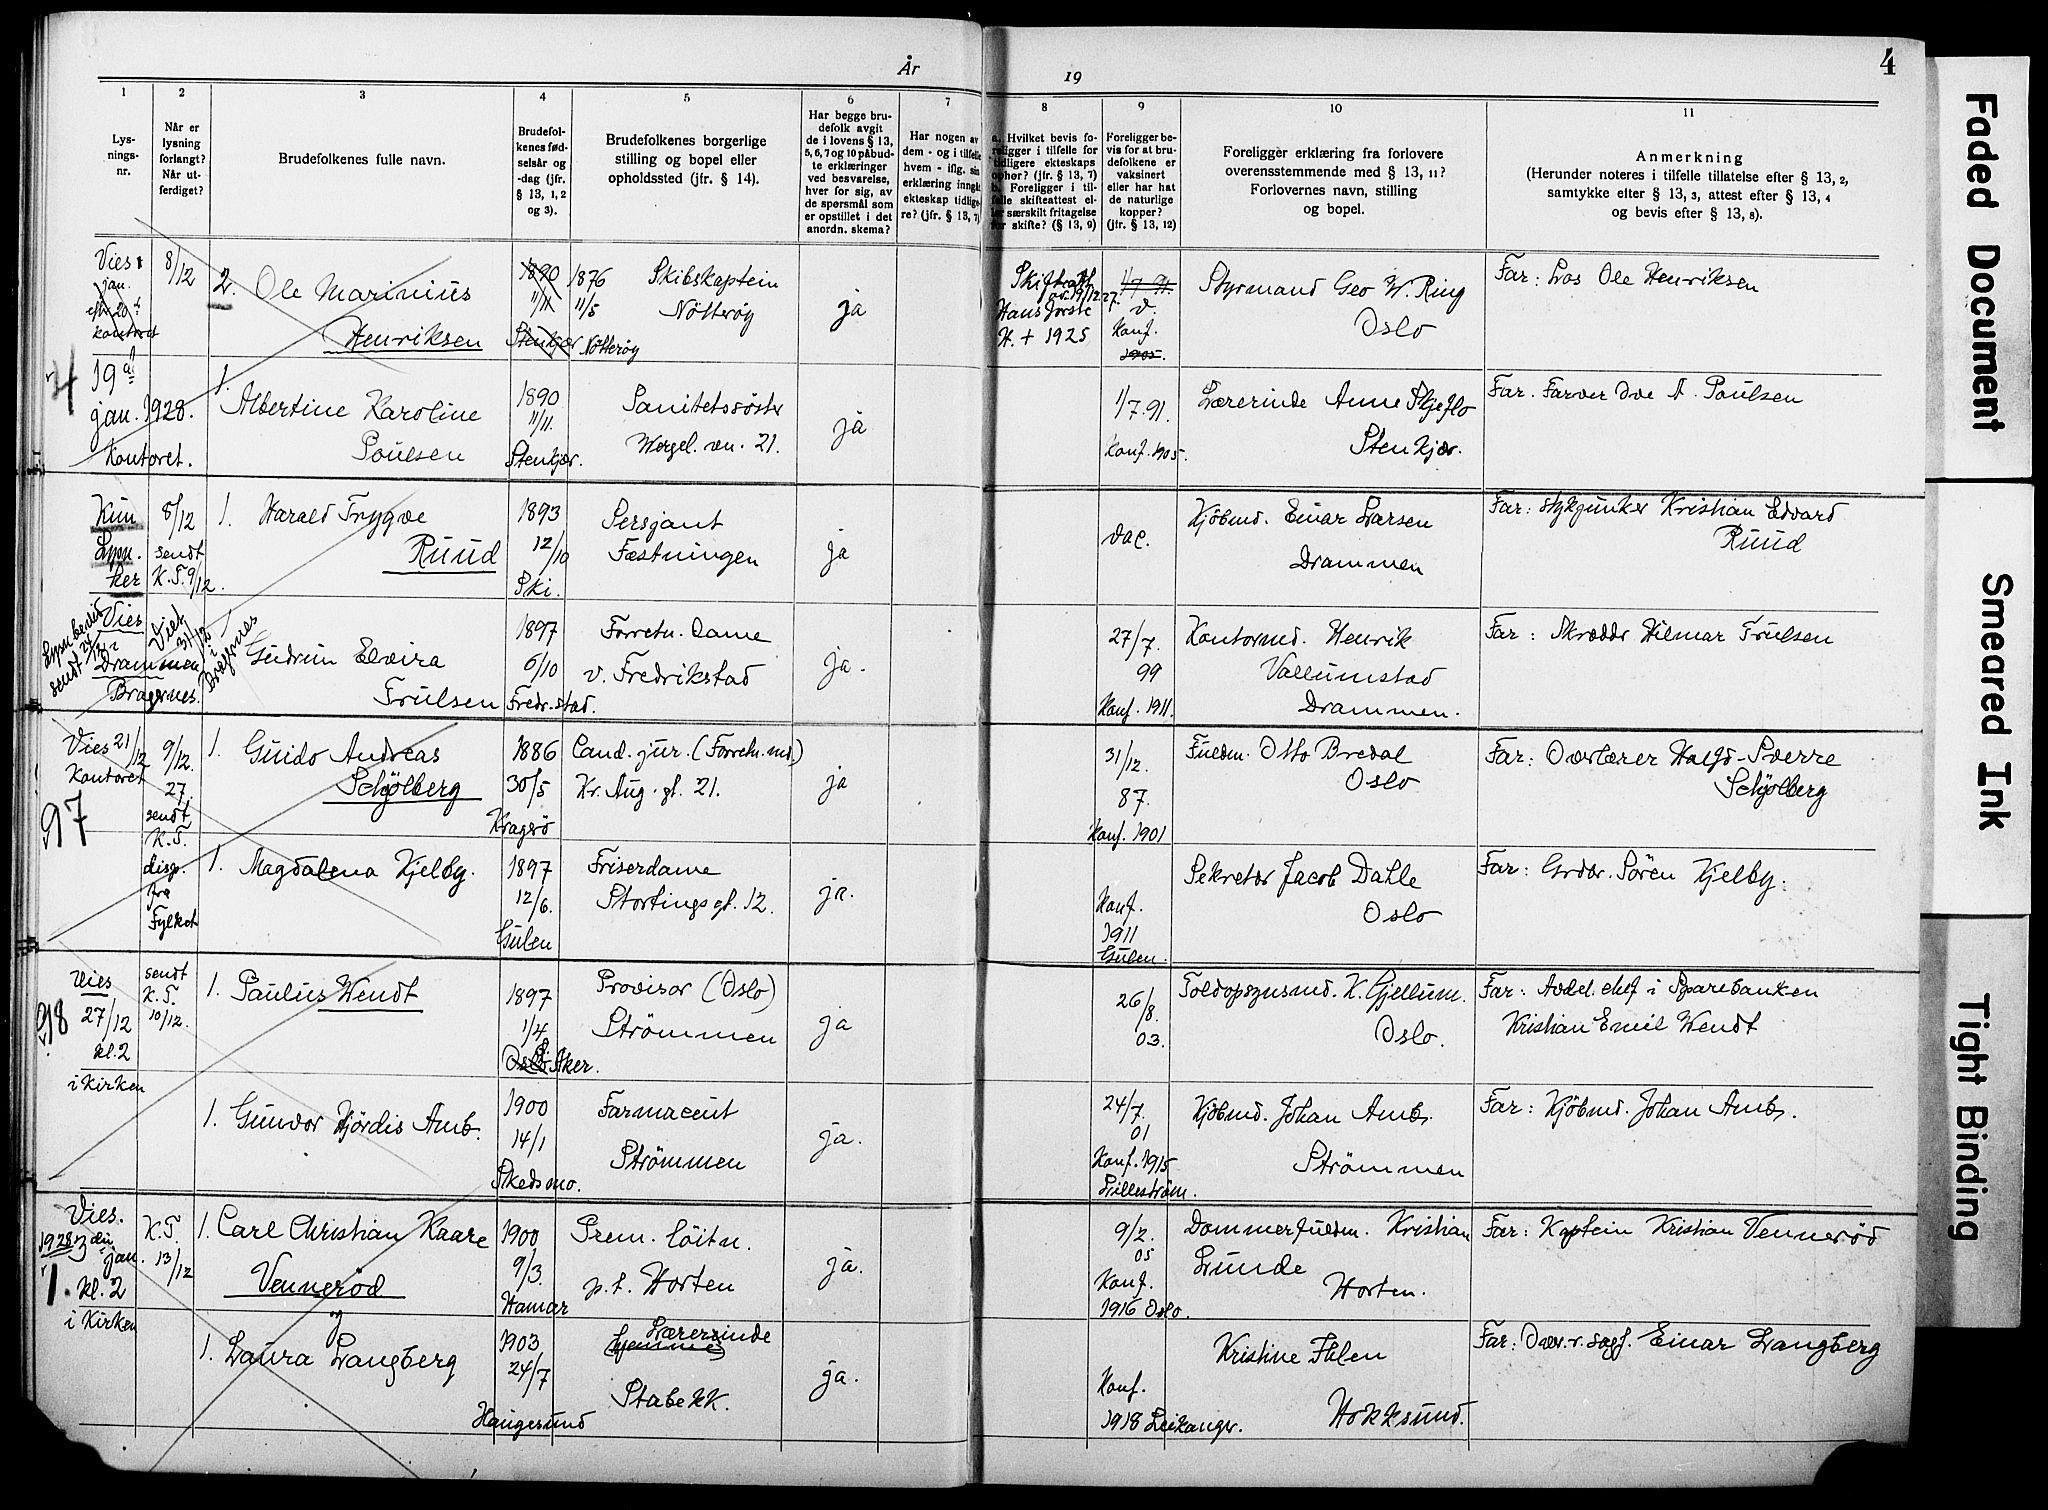 År
19
4
1
2
3
4
5
6
7
8
9
10
11
Lys-
nings-
nr.
Når er
lysning
forlangt?
Når ut-
ferdiget?
Brudefolkenes fulle navn.
Brudefol-
kenes fød-
selsår og
-dag (jfr.
§ 13, 1, 2
og 3).
Brudefolkenes borgerlige
stilling og bopel eller
opholdssted (jfr. § 14).
Har begge bru-
defolk avgit
de i lovens § 13,
5, 6, 7 og 10 påbud-
te erklæringer
ved besvarelse,
hver for sig, av
de spørsmål som
er opstillet i det
anordn. skema?
Har nogen av
dem - og i tilfelle
hvem - iflg. sin
erklæring inngått
ekteskap tidlige-
re? (jfr. § 13, 7)
a. Hvilket bevis fo-
religger i tilfelle for
tidligere ekteskaps
ophør? (jfr. § 13, 7)
b. Foreligger i til-
felle skifteattest el-
ler særskilt fritagelse
for skifte? (§ 13, 9)
Foreligger be-
vis for at bru-
defolkene er
vaksinert
eller har hat
de naturlige
kopper?
(jfr. § 13, 12)
Foreligger erklæring fra forlovere
overensstemmende med § 13, 11?
Forlovernes navn, stilling
og bopel.
Anmerkning
(Herunder noteres i tilfelle tillatelse efter § 13, 2,
samtykke efter § 13, 3, attest efter § 13, 4
og bevis efter § 13, 8).
Vies
jan.
kontoret
8/12
2. Ole Marinius
Henriksen
1890 1876
11/11 11/5
Stenkjær Nötteröy
Skibskaptein
Nötteröy
ja
Hans forste
H. + 1925
v.
Konf.
1905.
Styrmand Geo W. Ring
Oslo
Far: Los Ole Henriksen
4
19
jan. 1928.
Kontoret.
1.
Albertine Karoline
Poulsen
1890
11/11.
Stenkjær.
Sanitetssöster
Wergel. vn. 21.
ja
1/7.91.
Konf. 1905.
Lærerinde Anne Skjeflo
Stenkjær.
Far. Farver Ove A. Poulsen
Kun
Lysn.
ker
8/12
sendt
K.T. 9/12.
1. Harald Trygve
Ruud
1893
12/10
Ski.
Sersjant
Fæstningen
ja
vac.
Kjöbmd. Einar Larsen
Drammen
Far: Stykjunker Kristian Edvard
Ruud
Vies
i
Drammen
Bragernes.
Viet
31/12
i
Bragernes
1
Gudrun Elvira
Frulsen
1897
6/10
Fredr.stad.
Forretn. Dame
v. Fredrikstad
ja.
27/7.
99
Konf. 1911.
Kontormd. Henrik
Vallumstad
Drammen.
Far: Skrædder Hilmar Frulsen
Vies 21/12
Kontoret
97
9/12.
27.
sendt
K.T.
disp.
fra
Fylket
1. Guido Andreas
Schjölberg
1886
30/5
Kragerö
Cand. jur. (Forretn. md.)
Kr. Aug. gt. 21.
ja
31/12.
87.
Konf. 1901
Fuldm. Otto Bredal
Oslo
Far: Overlærer Halfd. Sverre
Schjölberg
1. Magdalena Kjelby.
1897
12/6.
Gulen
Friserdame
Stortings gt. 12.
ja.
Konf.
1911
Gulen.
Sekretær Jacob Dahle
Oslo
Far: Grdbr. Sören Kjelby.
98
Vies
27/12
kl. 2
i Kirken
sendt
K.T.
10/12.
1. Paulus Wendt
1897
1/4
Oslo Aker.
Provisor (Oslo)
Strömmen
ja
26/8.
03.
Toldopsynsmd. K. Gjellum.
Oslo.
Far: Avdel. chef i Sparebanken
Kristian Emil Wendt
1. Gunvor Hjördis Amb.
1900
14/1
Skedsmo.
Farmaceut
Strömmen
ja.
24/7.
01
Konf. 1915
Lilleström.
Kjöbmd. Johan Amb.
Strömmen
Far: Kjöbmd. Johan Amb.
Vies.
1928 3 die
jan.
1. kl. 2
i Kirken
K.T.
13/12
1. Carl Christian Kaare
Venneröd
1900
9/3.
Hamar
Prem. löitn.
p.t. Horten
ja.
9/2.
05
Konf.
1916 Oslo.
Dommerfuldm. Kristian
Lunde
Horten.
Far: Kaptein Kristian Venneröd
1. Laura Langberg
1903
24/7
Haugesund
Lærerinde
(hjemme)
Stabekk.
ja.
Konf.
1918 Leikanger.
Kristine Ihlen
Hokksund.
Far: Overr. sagf. Einar Langberg
Faded Document
Smeared Ink
Tight Binding